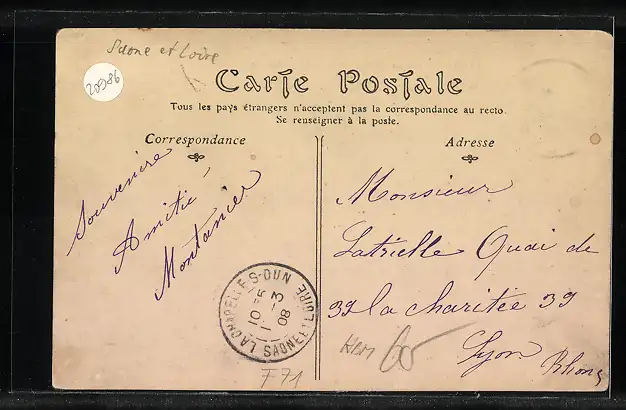 Saone et Loire
20986
Carte Postale
Tous les pays étrangers n'acceptent pas la correspondance au recto.
Se renseigner à la poste.
Correspondance
Adresse
Souvenire
Amitié
Montanier
Monsieur
Latrielle Quai de
39 la charitée 39
Lyon Rhone
LA CHAPELLE-S-DUN
10
1 - 3
08
SAONE ET LOIRE
60
F71